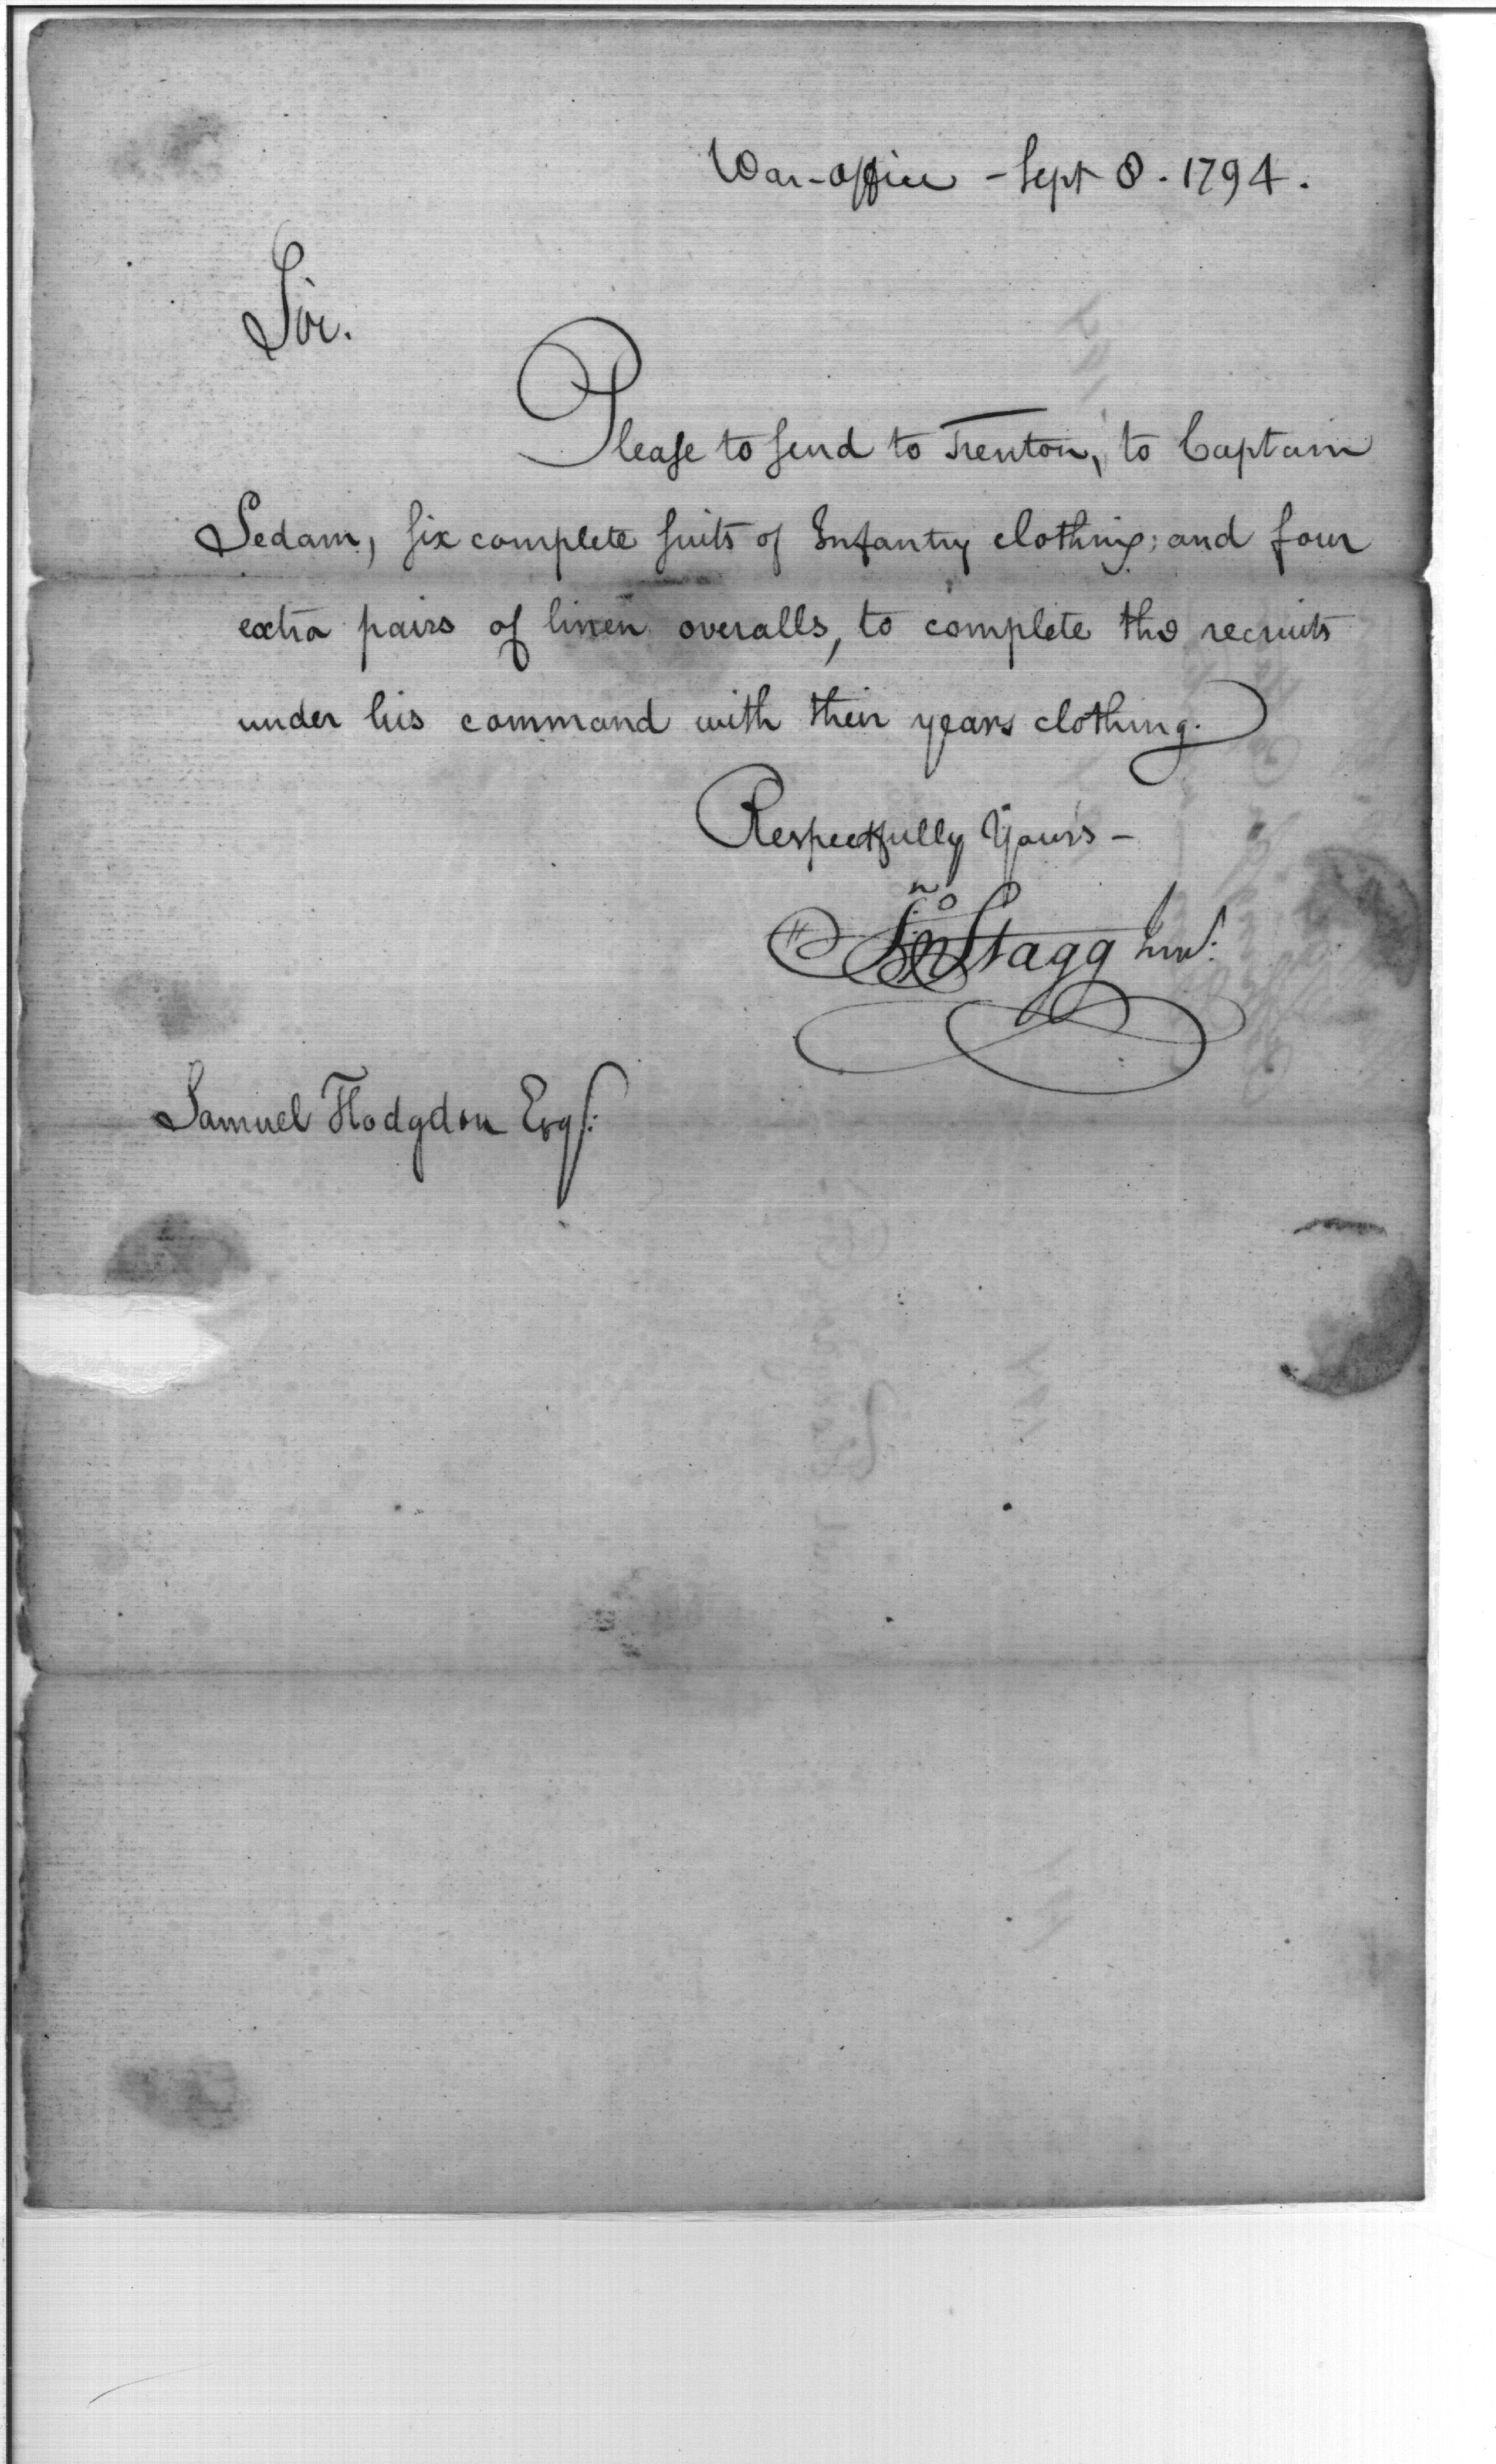 War-office - Sept 8. 1794.
Sir.
Please to send to Trenton, to Captain
Sedam, six complete suits of Infantry clothing; and four
extra pairs of linen overalls, to complete the recruits
under his command with their years clothing.
Respectfully Yours -
Jno Stagg Junr:
Samuel Hodgdon Esqr: